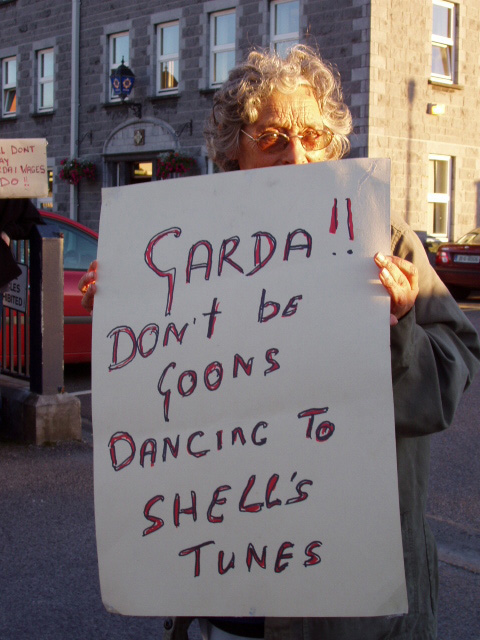 GARDA!!
DON't be
GOONS
DANCING TO
SHELL's
TUNES
L DONT
AY
RDAI WAGES
DO!!
LES
HIBITED